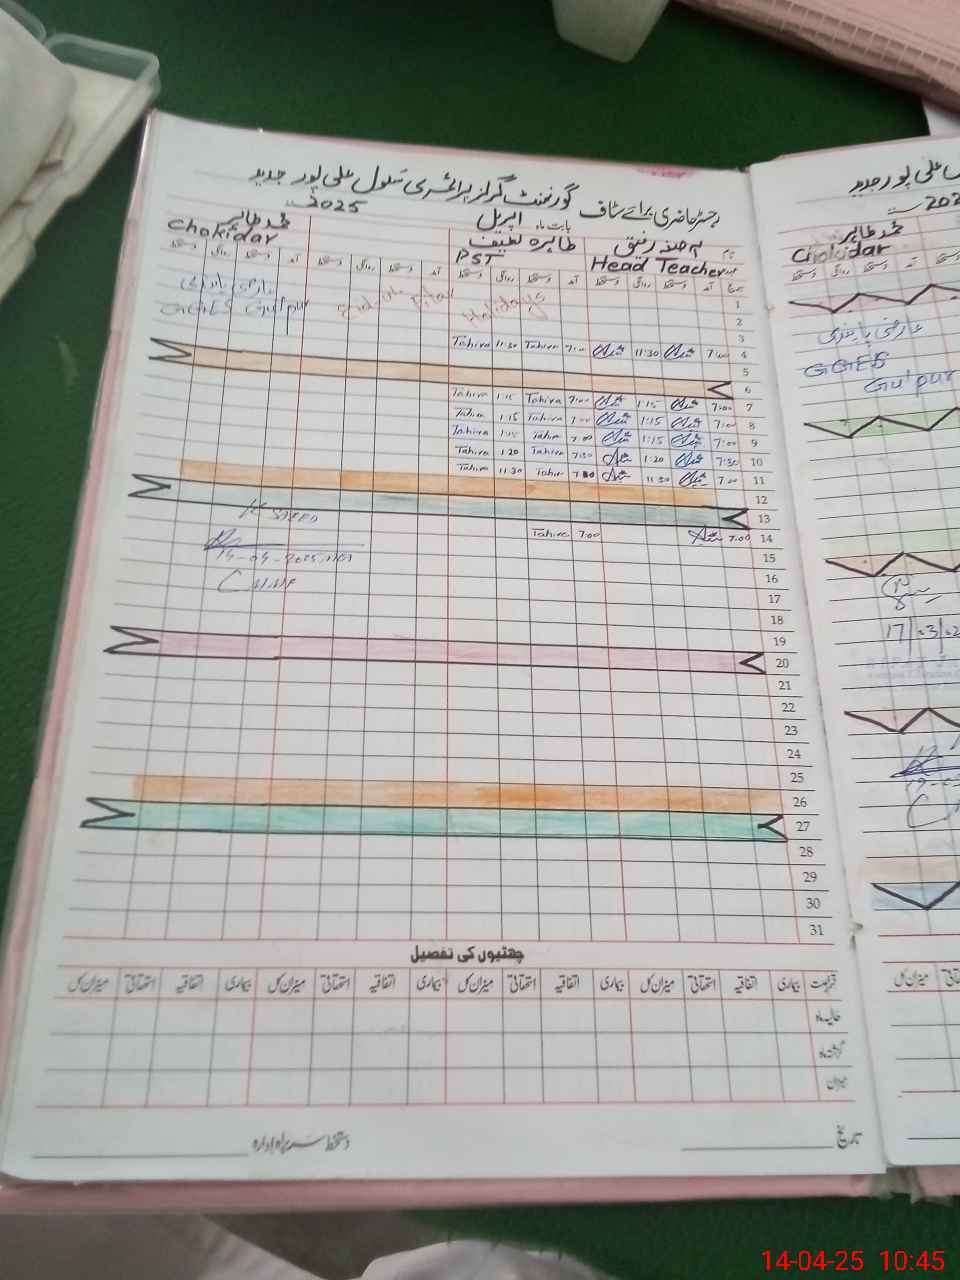 رجسٹر حاضری برائے سٹاف گورنمنٹ گرلز پرائمری سکول علی پور جدید
بابت ماہ اپریل 2025
نام طاہرہ لطیف محمد طاہر
Head Teacher PST Chokidar
تاریخ آمد دستخط روانگی دستخط آمد دستخط روانگی دستخط آمد دستخط روانگی دستخط آمد دستخط روانگی دستخط
1 عارضی پابندی
2 Eid-ul-Fitar Holidays GGES Gulpur
3
4 7:00 11:30 7:00 Tahira 11:30 Tahira
5
6
7 7:00 1:15 7:00 Tahira 1:15 Tahira
8 7:00 1:15 7:00 Tahira 1:15 Tahira
9 7:00 1:15 7:00 Tahira 1:15 Tahira
10 7:30 1:20 7:30 Tahira 1:20 Tahira
11 7:00 11:30 7:00 Tahira 11:30 Tahira
12
13
14 7:00 7:00 Tahira
15 14-04-2025
16
17
18
19
20
21
22
23
24
25
26
27
28
29
30
31
چھٹیوں کی تفصیل
بیماری اتفاقیہ استحقاقی میزان کل بیماری اتفاقیہ استحقاقی میزان کل بیماری اتفاقیہ استحقاقی میزان کل بیماری اتفاقیہ استحقاقی میزان کل
حالیہ ماہ
گزشتہ ماہ
میزان
تاریخ دستخط سربراہ ادارہ
علی پور جدید
محمد طاہر
Chokidar
عارضی پابندی
GGES
Gulpur
14-04-25 10:45